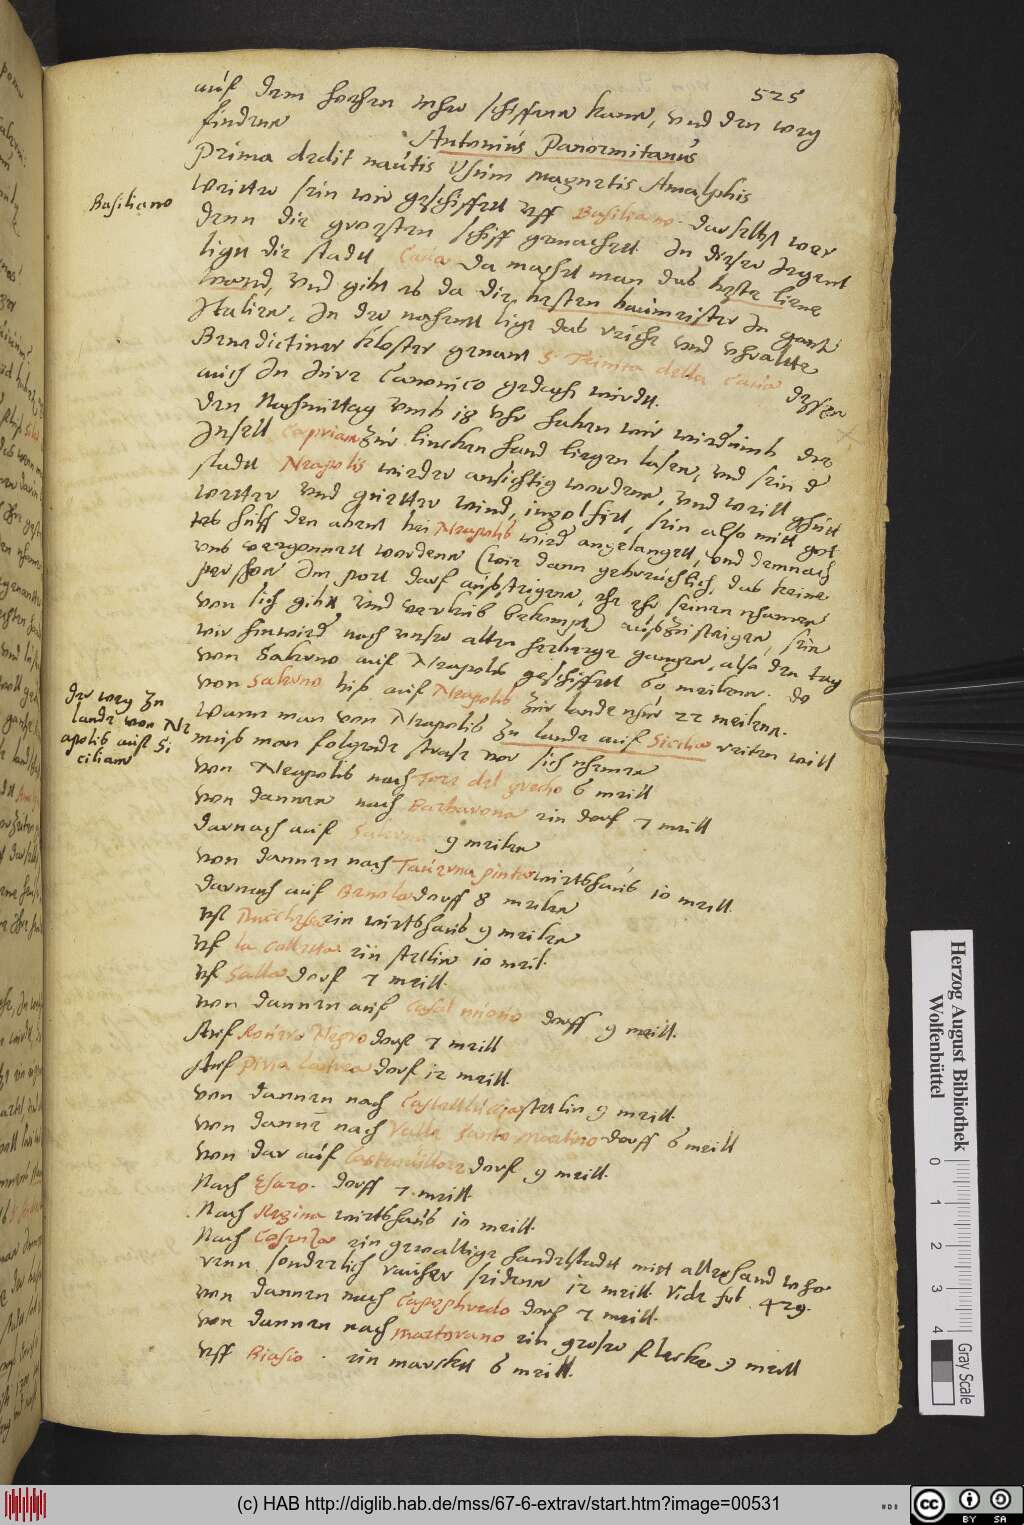 525
auf dem hochen mehr schiffenn kann, und den weg
findenn
Antonius Panormitanus
Prima dedit nautis usum magnetis Amalphis
Basiliano
Weitter sein wir geschiffett uff Basiliano. daselbst wer
denn die grosten schiff gemachett. In dieser Jegent
ligtt die stadtt Caua da machett man das beste liene
wand, und gibt es da die besten baumeister In gantz
Italien. In der nohentt ligt das reiche und uhraltte
Benedictiner kloster genant S. Trinita della Caua dessen
auch In Jure Canonico gedacht wirdtt.
den Nachmittag umb 18 uhr haben wir wiedrumb die
Insell Capriam zur lincken hand liegen lasen, und sein d
stadtt Neapolis wieder ansichtig wordenn, und weill gutt
wetter und guetter wind, sein also mitt got
tes hülff den abent bei Neapolis wird angelangett, und demnach
uns vergonnett wordenn (wie dann gebreuchlich, das keine
pershon Im port darf aussteigenn, ehr ehr seinen nhamen
von sich gibtt und verlaub bekompt) auszusteigen, sein
wir hinwied nach unser alten herberge gangen, also den tag
von Salerno auf Neapolis geschiffett 60 meilenn. do
von Salerno bis auf Neapolis zur lande nhur 22 meilenn.
der weg zu
lande von Ne
apolis auff Si
ciliam
Wann man von Neapolis zu lande auf Sicilia reiten will
mus man folgende strase vor sich nhemen
von Neapolis nach Torre del grecho 6 meill
von dannen nach Barbarona ein dorf 7 meill
darnach auf Salerno 9 meilen
von dannen nach Tauerna pinta wirtshaus 10 meill.
darnach auf Benola dorff 8 meilen
uff ein wirtshaus 9 meilen
uf la Colletta ein stetlin 10 meil.
uf Salla dorf 7 meill.
von dannen auf Casal nuouo dorff 9 meill.
Auf Rouere Negro dorf 7 meill
Auf dorf 12 meill
von dannen nach stetlin 9 meill.
von danne nach Valle Santo Martino dorff 6 meill
von dar auf Castrouillare dorf 9 meill.
Nach Esaro. dorff 7 meill.
Nach Regina wirtshaus 10 meill.
Nach Cosenza ein gewaltige handelstadtt mitt allerhand whar
renn sonderlich rauher seidenn 12 meill. Vide fol. 429.
von dannen nach dorf 7 meill.
von dannen nach Martorano ein groser flecken 9 meill
uff Biasio. ein marcktt 6 meill.
Herzog August Bibliothek
Wolfenbüttel
0 1 2 3 4
Gray Scale
(c) HAB http://diglib.hab.de/mss/67-6-extrav/start.htm?image=00531
cc BY SA